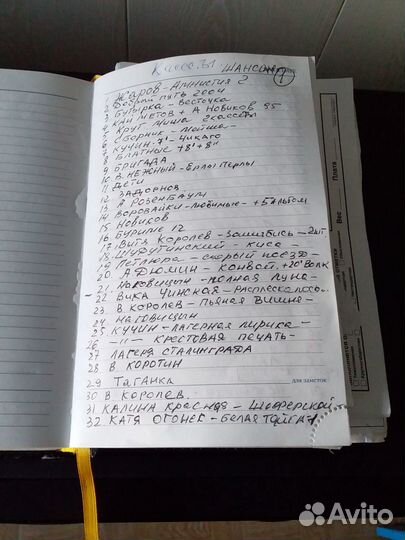 Кассеты ШАНСОН 1
1 Жаров - Амнистия 2
2 Добрый путь 2004
3 Бутырка - Весточка
4 Кай Метов + А Новиков 95
5 Круг Миша 2 кассеты
6 Сборник -
7 Кучин. 7' - Чикаго
8 Блатные +8'+8''
9 Бригада
10 В. Нежный - Ерлы Перлы
11 Дети
12 Задорнов
13 А Розенбаум
14 Воровайки - Любимые - +5 Альбом
15 Новиков
16 Буриме 12
17 Витя Королев - Зашибись - 2шт.
18 Шуфутинский - киса -
19 Петлюра - скорый поезд -
20 А Дюмин - Конвой. +2С' Волк
21 Наговицын - Полная луна -
22 Вика Чинская - Расплескалось..
23 В. Королев - Пьяная Вишня -
24 Наговицин
25 Кучин - Лагерная лирика -
26 -"- Крестовая печать -
27 Лагеря Сталинграда
28 В Коротин
29 Таганка
для заметок
30 В Королев.
31 Калина Красная - Шоферской
32 Катя Огонек - Белая Тайга 1
Вес
Плата
Avito